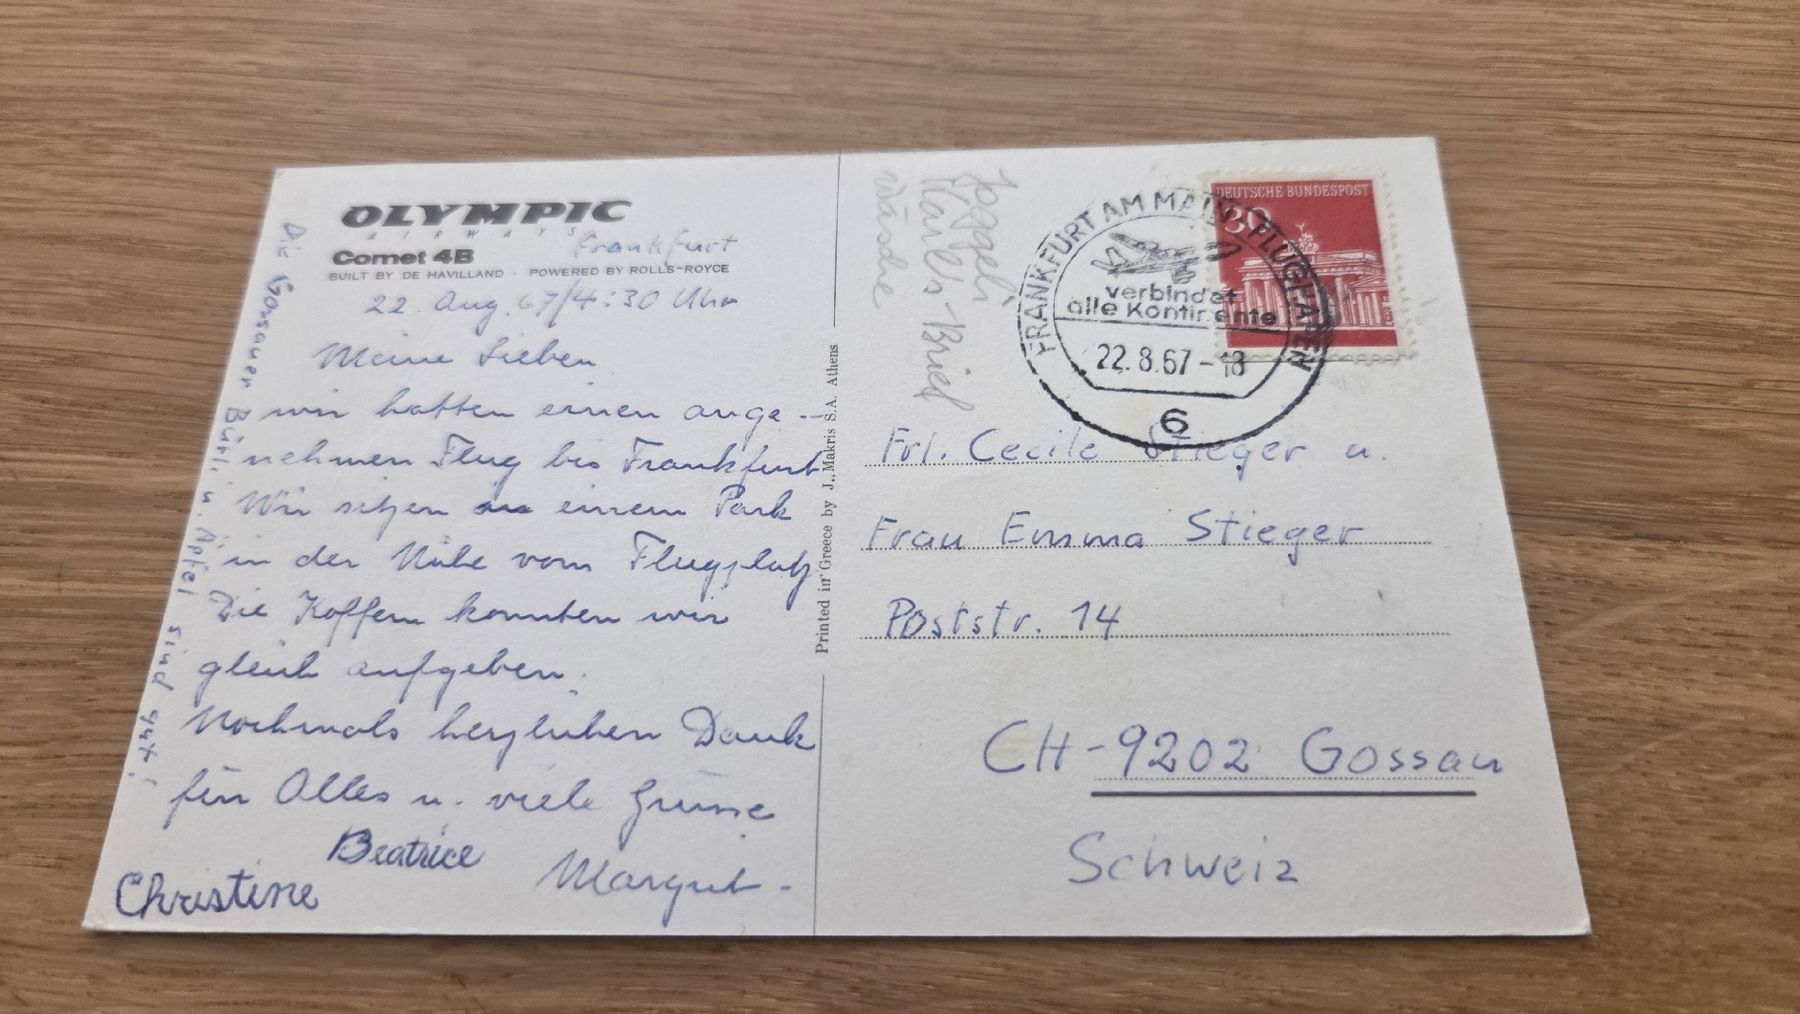 OLYMPIC
AIRWAYS
Frankfurt
Comet 4B
BUILT BY DE HAVILLAND · POWERED BY ROLLS-ROYCE
22. Aug. 67/4:30 Uhr
Meine Lieben
wir hatten einen ange-
nehmen Flug bis Frankfurt
Wir sitzen in einem Park
in der Nähe vom Flugplatz
Die Koffern konnten wir
gleich aufgeben.
Nochmals herzlichen Dank
für Alles u. viele Grüsse
Beatrice
Margrit -
Christine
Die Gossauer Bürli u. Äpfel sind gut!
Printed in Greece by J. Makris S.A. Athens
Joggeli
Karl's-Brief
Wäsche
DEUTSCHE BUNDESPOST
30
FRANKFURT AM MAIN FLUGHAFEN
verbindet
alle Kontinente
22.8.67-18
6
Frl. Cecile Stieger u.
Frau Emma Stieger
Poststr. 14
CH-9202 Gossau
Schweiz